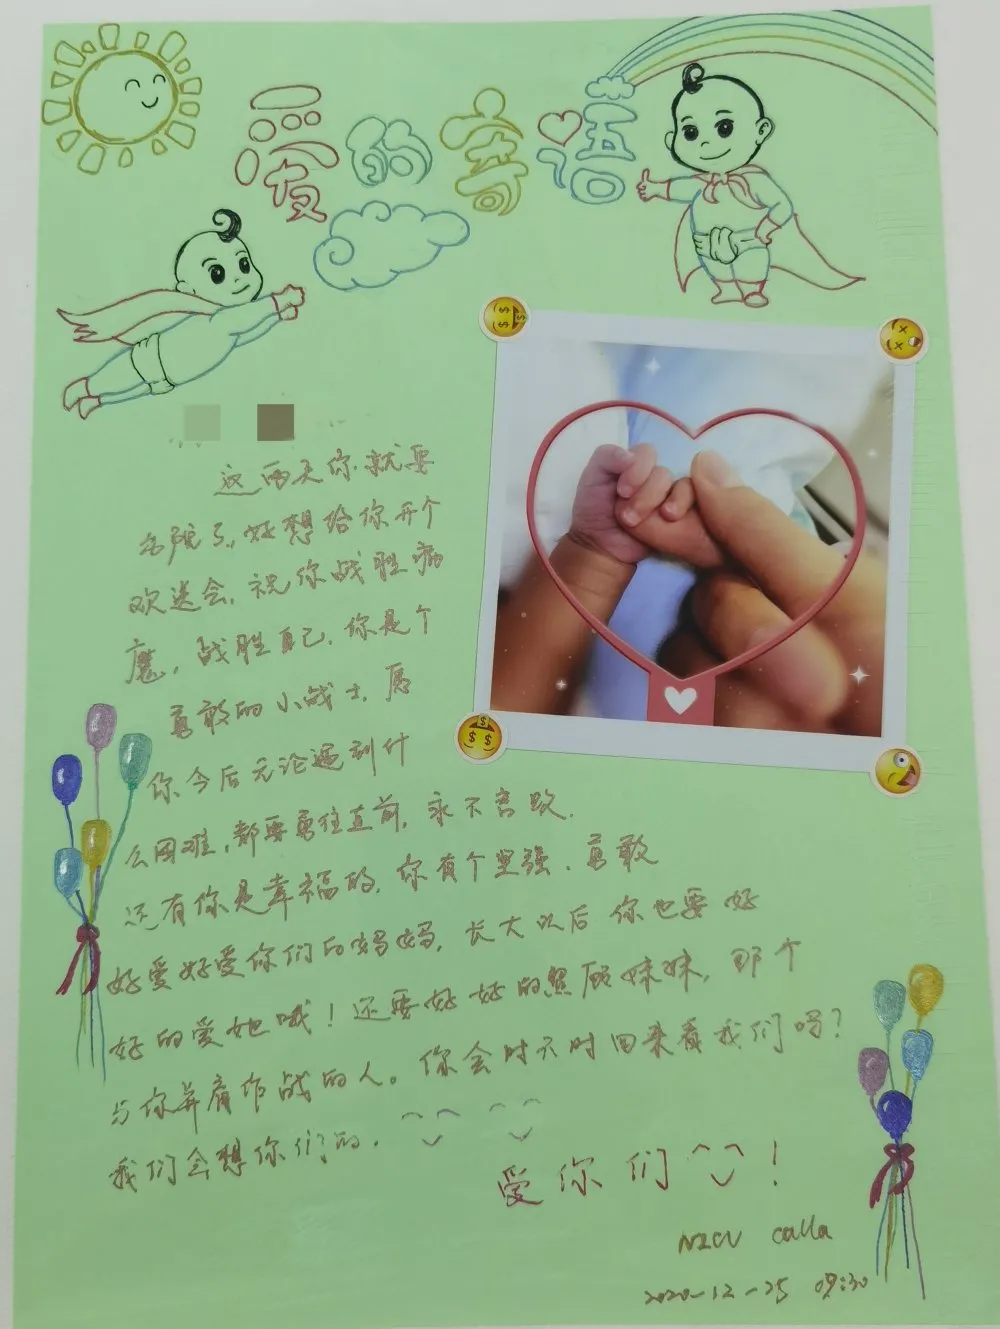 爱的寄语
这两天你就要
出院了,好想给你开个
欢送会,祝你战胜病
魔,战胜自己,你是个
勇敢的小战士,愿
你今后无论遇到什
么困难,都要勇往直前,永不言败.
还有你是幸福的,你有个坚强、勇敢
好爱好爱你们的妈妈,长大以后你也要好
好的爱她哦!还要好好的照顾妹妹,那个
与你并肩作战的人。你会时不时回来看我们吗?
我们会想你们的.
爱你们!
NICU calla
2020-12-25 09:30